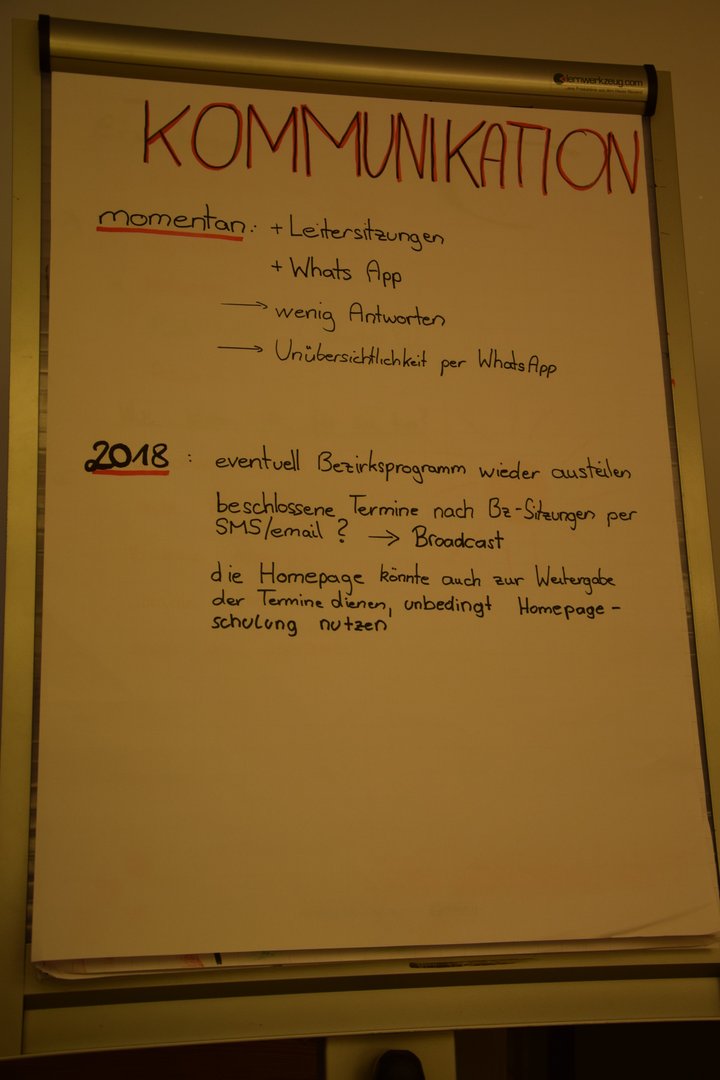 lernwerkzeug.com
KOMMUNIKATION
momentan: + Leitersitzungen
+ Whats App
→ wenig Antworten
→ Unübersichtlichkeit per WhatsApp
2018 : eventuell Bezirksprogramm wieder austeilen
beschlossene Termine nach Bz-Sitzungen per
SMS/email ? → Broadcast
die Homepage könnte auch zur Weitergabe
der Termine dienen, unbedingt Homepage-
schulung nutzen